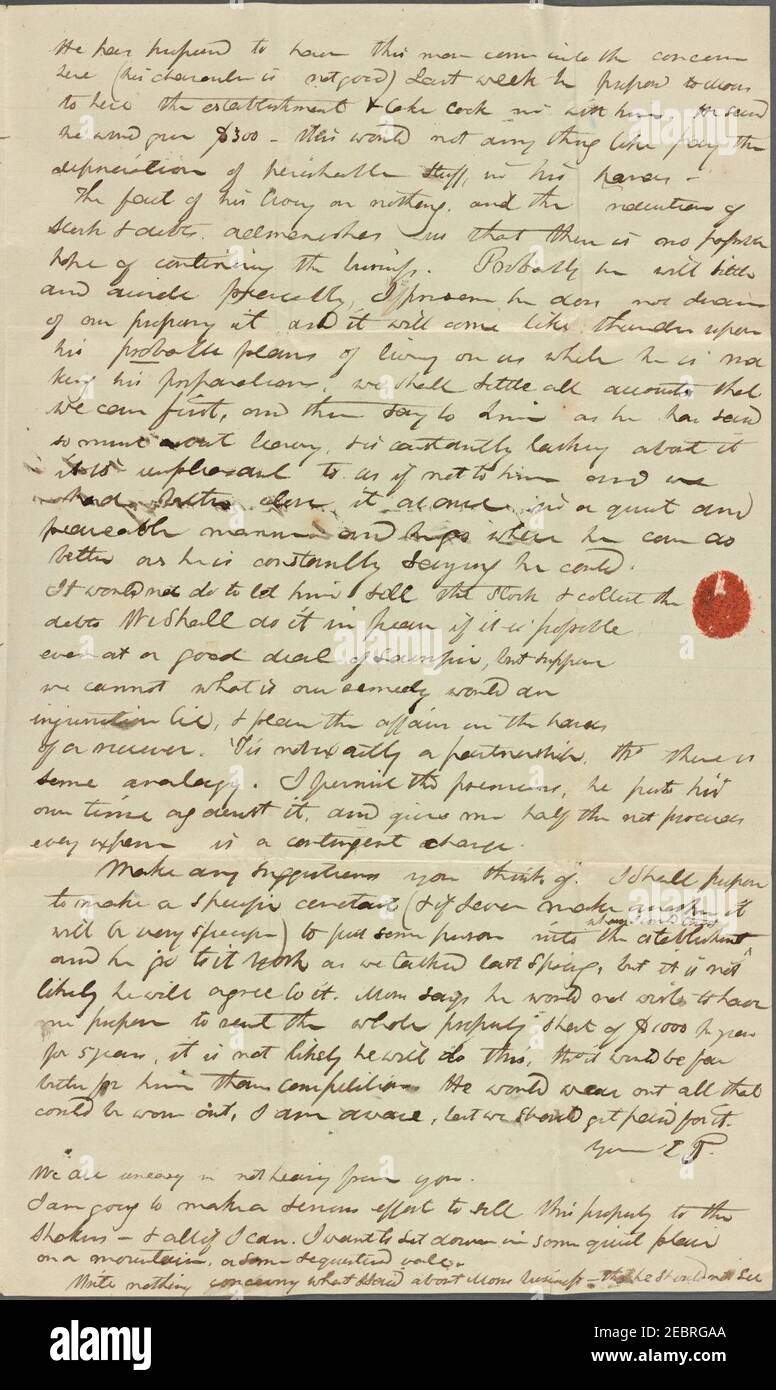 He has proposed to have this man come into the concern
here (his character is not good) Last week he proposed to Moses
to hire the establishment & take Cook in with him, he said
he would give $300 - this would not any thing like pay the
depreciation of perishable stuff, in his hands -
The fact of his living on nothing, and the reduction of
stock & debts admonishes us that there is no possible
hope of continuing the business. Probably he will settle
and divide peaceably, I presume he does not dream
of our proposing it, and it will come like thunder upon
his probable plans of living on us while he is ma
king his preparations, we shall settle all accounts that
we can first, and then say to him as he has said
so much about leaving, & is constantly talking about it
it is unpleasant to us if not to him and we
had better close it at once in a quiet and
peaceable manner and he go where he can do
better as he is constantly saying he could.
It would not do to let him sell the stock & collect the
debts We shall do it in peace if it is possible
even at a good deal of sacrifice, but suppose
we cannot what is our remedy would an
injunction lie, & place the affair in the hands
of a receiver. 'Tis not exactly a partnership, tho there is
some analogy. I furnish the premises, he puts his
own time against it, and gives me half the net proceeds
every expense is a contingent charge.
Make any suggestions you think of. I shall propose
to make a specific contract (& if I ever make another it
will be very specific) to put some person into the establishment
and he go to it work as we talked last Spring, but it is not
likely he will agree to it. Moses says he would not wish to have
me propose to rent the whole property short of $1000 pr year
for 5 years, it is not likely he will do this, tho it would be far
better for him than competition He would wear out all that
could be worn out, I am aware, but we should get paid for it.
Your E P.
We are uneasy in not hearing from you.
I am going to make a serious effort to sell this property to the
Shakers - & all if I can. I want to set down in some quiet place
on a mountain, or some sequestered vale.
Write nothing concerning what I said about Moses business - tho he should not see
alamy
Image ID: 2EBRGAA
www.alamy.com